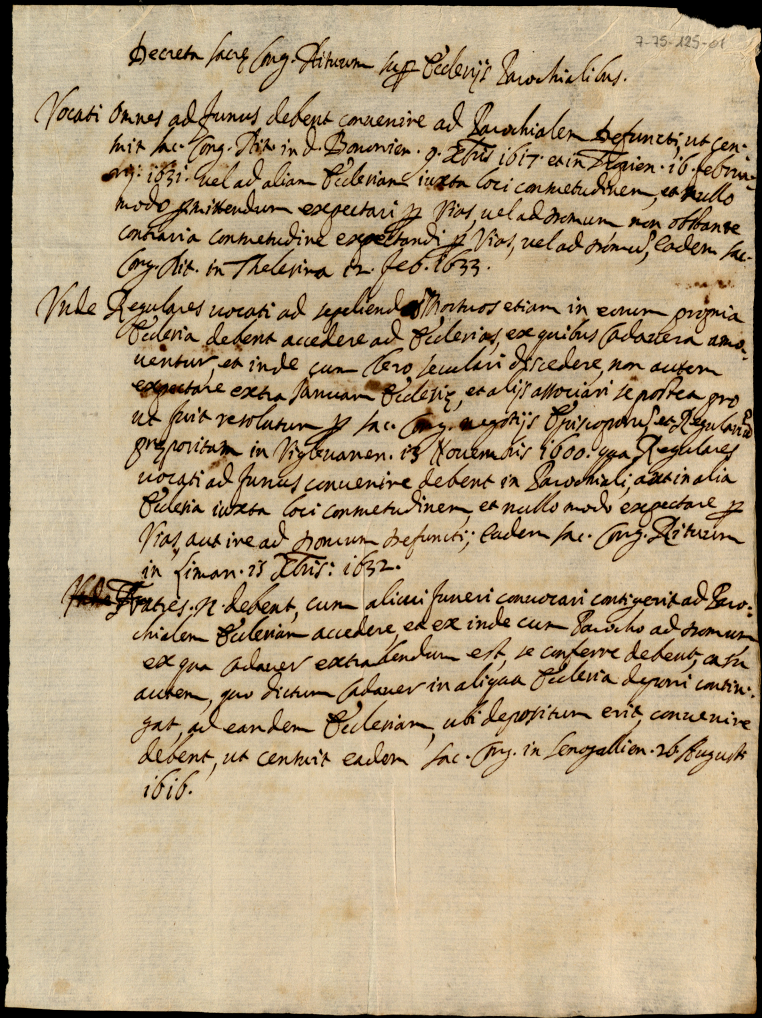 7-75-125-01
Decreta sacrę Cong. Rituum sup Ecclesijs Parochialibus.
Vocati omnes ad funus debent conuenire ad Parochialem defuncti, ut cen-
suit sac. Cong. Rit. in d. Bononien. 9. Xbris 1617. et in 16. februa-
rij: 1631. uel ad aliam Ecclesiam iuxta loci consuetudinem, et nullo
modo pmittendum expectari p Vias, uel ad domum non obstante
contraria consuetudine expectandi p Vias, uel ad domũ, Eadem sac.
Cong. Rit. in Thelesina 12. feb. 1633.
Vnde Regulares uocati ad sepeliendos Mortuos etiam in eorum propria
Ecclesia debent accedere ad Ecclesias, ex quibus Cadauera amo-
uentur, et inde cum Clero seculari discedere, non autem
expectare extra Ianuam Ecclesię, et alijs associari se postea pro
ut fuit resolutum p sac. Cong. negotijs Episcoporũ et Regulariũ
prępositam in Vigleuanen. 13 Nouembris 1600. qua Regulares
uocati ad funus conuenire debent in Parochiali, aut in alia
Ecclesia iuxta loci consuetudinem, et nullo modo expectare p
Vias, aut ire ad domum defuncti; Eadem sac. Cong. Rituum
in Liman. 13 Xbris: 1632.
Fratres. n. debent, cum alicui funeri conuocari contigerit ad Paro-
chialem Ecclesiam accedere, et ex inde cum Parocho ad domum
ex qua Cadauer extrahendum est, se conferre debent, casu
autem, quo dictum Cadauer in aliqua Ecclesia deponi contin-
gat, ad eandem Ecclesiam, ubi depositum erit, conuenire
debent, ut censuit eadem sac. Cong. in Senogallien. 26 Augusti
1616.